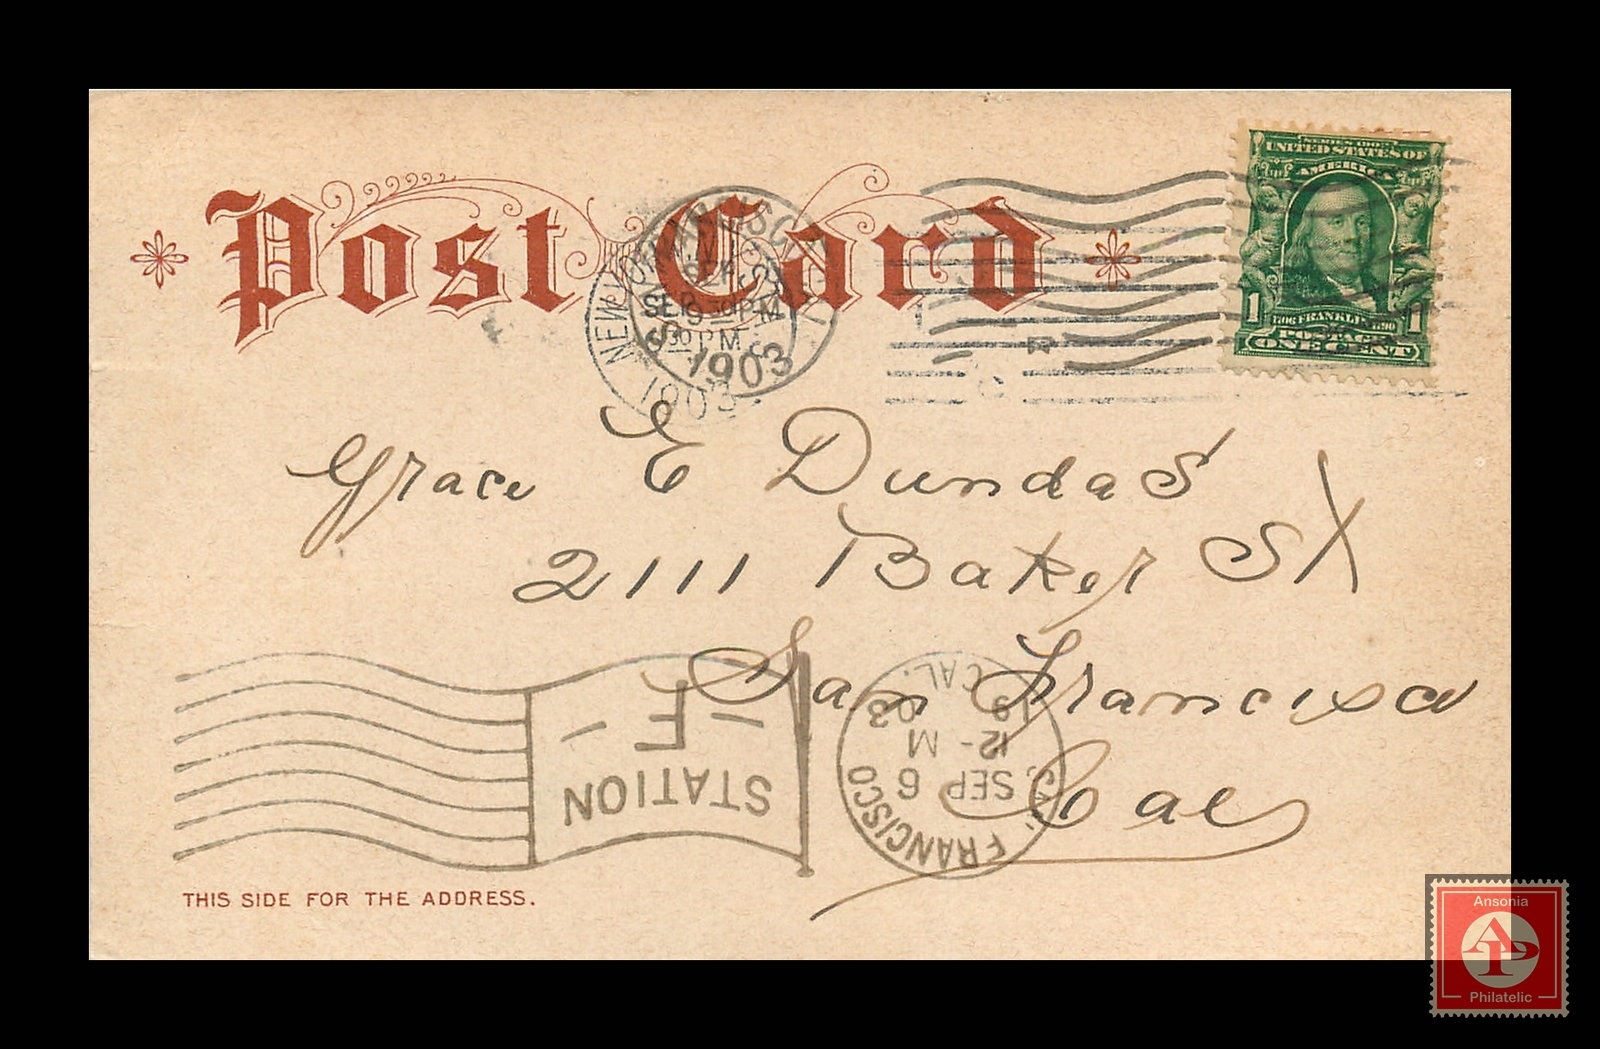 Post Card
SERIES 1902
UNITED STATES OF
AMERICA
1 1706 FRANKLIN 1790 1
POSTAGE
ONE CENT
NEW YORK, N.Y.
SEP
9
30 PM
1903
SEP
30 P M
1903
Grace E Dundas
2111 Baker St
San Francisco
Cal
STATION
F
SAN FRANCISCO CAL.
SEP 6
12-M
1903
THIS SIDE FOR THE ADDRESS.
Ansonia
AP
Philatelic